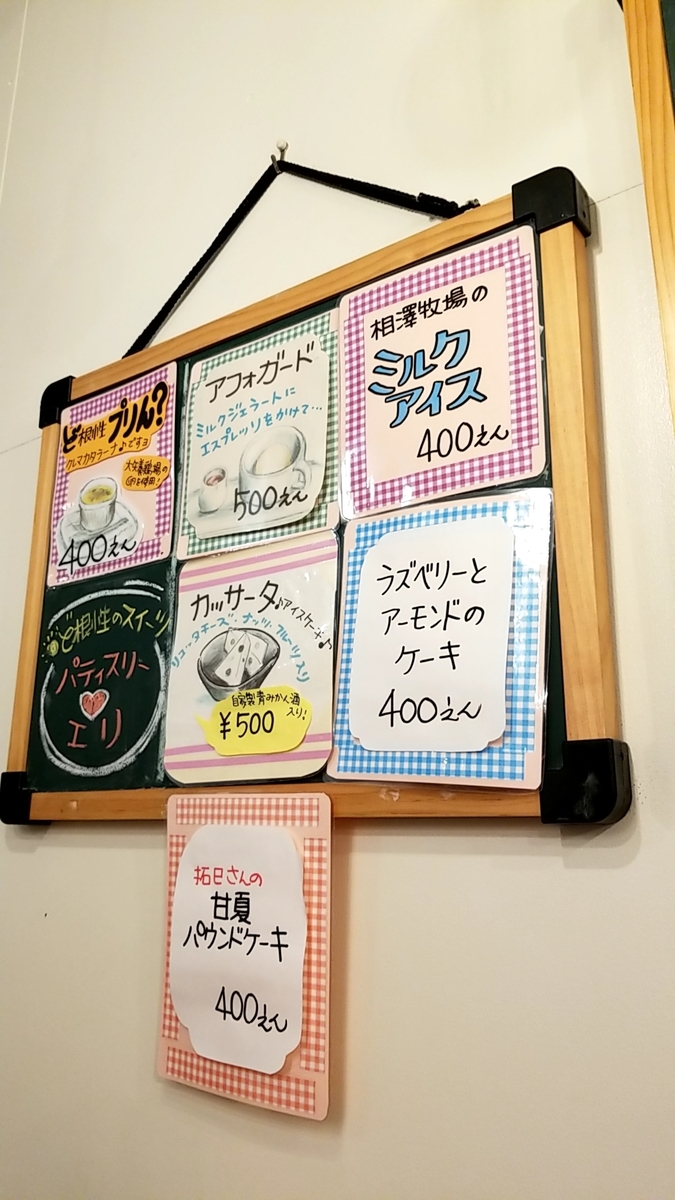 ど根性プリん?
クレマカタラーナ♪ですヨ
400えん
アフォガード
ミルクジェラートに
エスプレッソをかけて…
500えん
相澤牧場の
ミルク
アイス
400えん
ど根性のスイーツ
パティスリー
エリ
カッサータ♪アイスケーキ♪
リコッタチーズ・ナッツ・フルーツ入り
自家製青みかん酒
入り!
¥500
ラズベリーと
アーモンドの
ケーキ
400えん
拓巳さんの
甘夏
パウンドケーキ
400えん